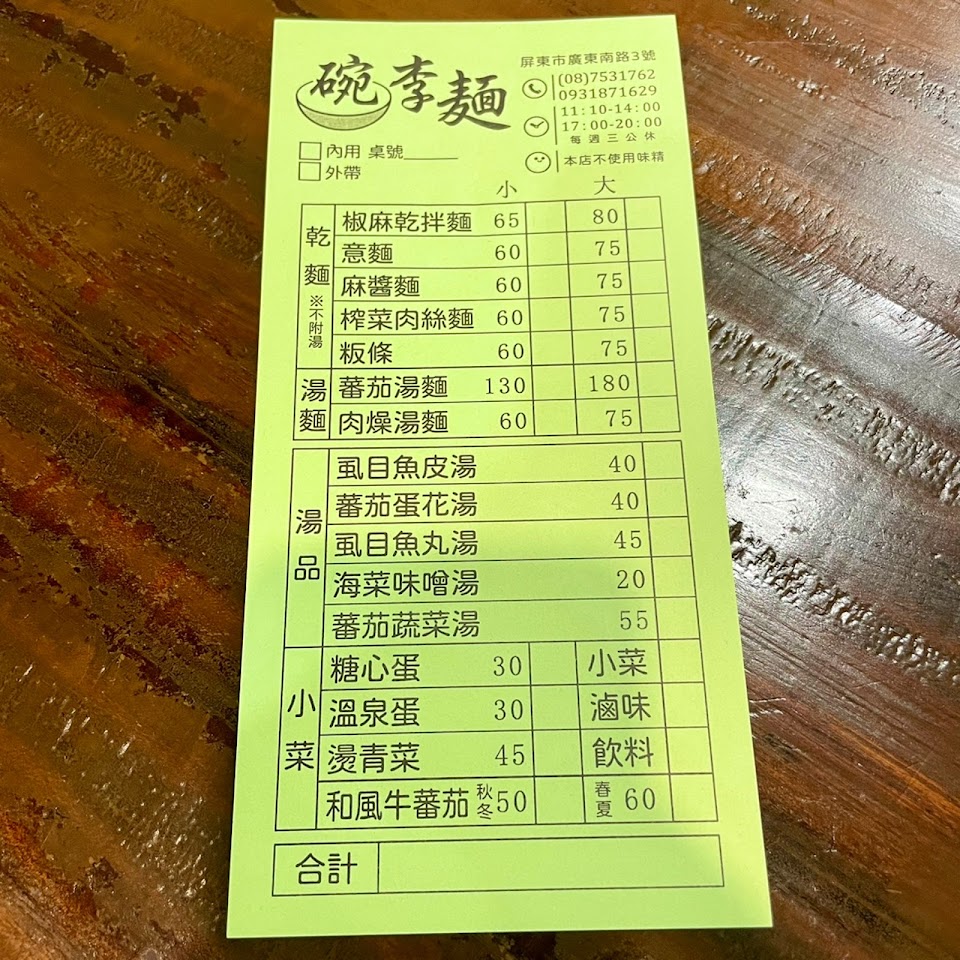 碗李麵
屏東市廣東南路3號
(08)7531762
0931871629
11:10-14:00
17:00-20:00
每週三公休
本店不使用味精
內用 桌號
外帶
小 大
乾麵
※不附湯
椒麻乾拌麵 65 80
意麵 60 75
麻醬麵 60 75
榨菜肉絲麵 60 75
粄條 60 75
湯麵
蕃茄湯麵 130 180
肉燥湯麵 60 75
湯品
虱目魚皮湯 40
蕃茄蛋花湯 40
虱目魚丸湯 45
海菜味噌湯 20
蕃茄蔬菜湯 55
小菜
糖心蛋 30 小菜
溫泉蛋 30 滷味
燙青菜 45 飲料
和風牛蕃茄 秋冬 50 春夏 60
合計